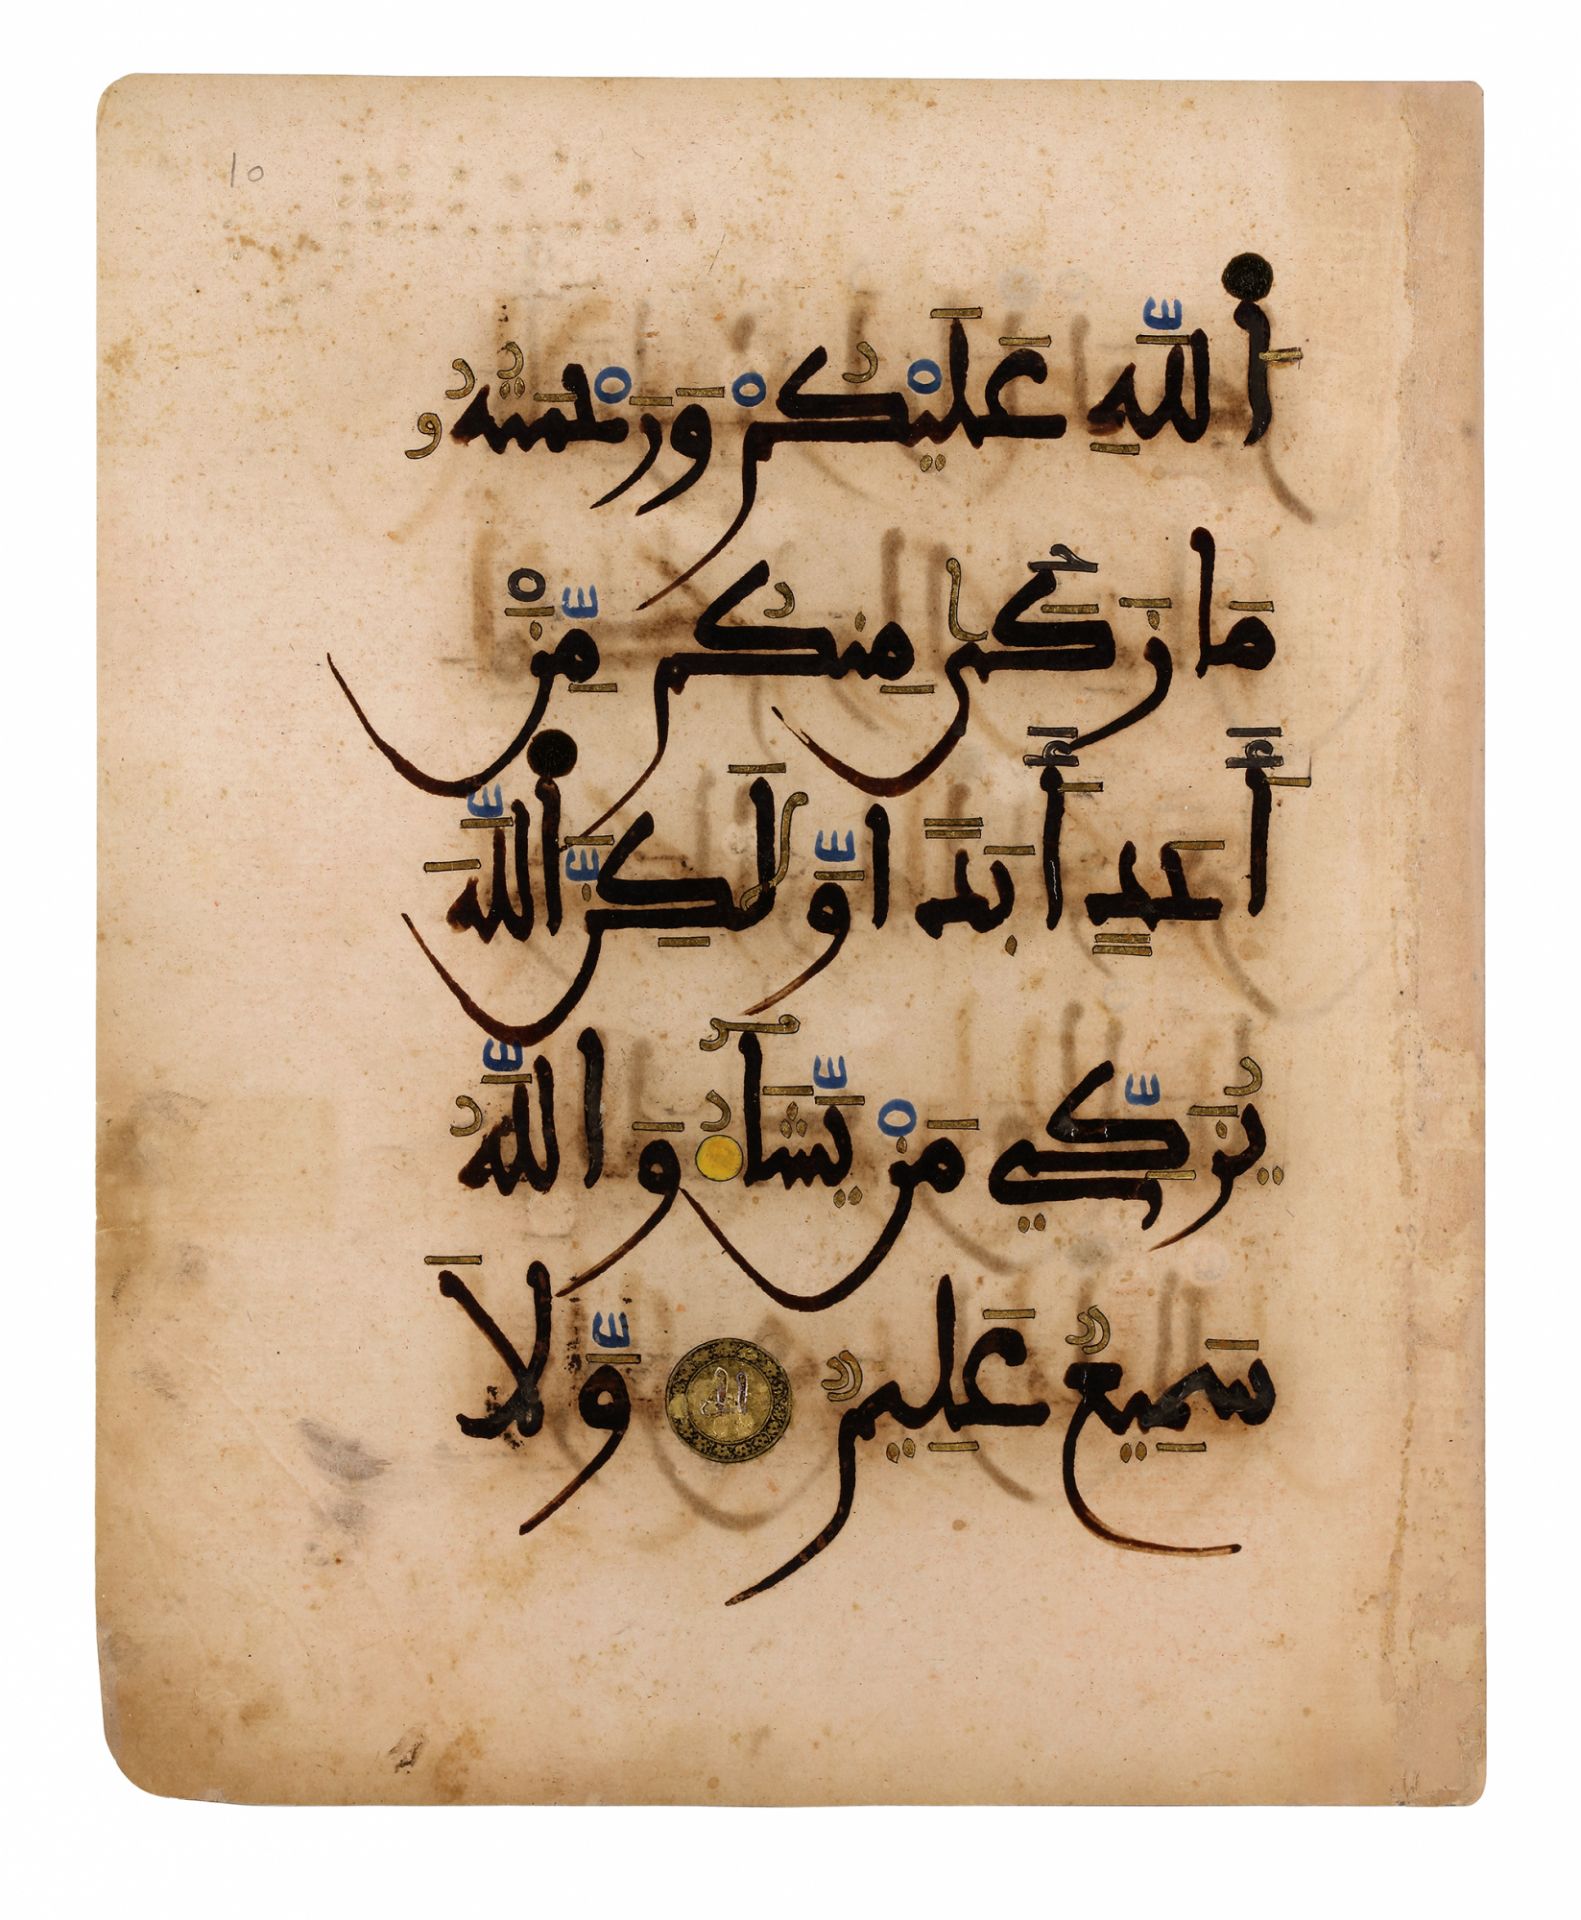 10
اَللَّهِ عَلَيْكُمْ وَرَحْمَتُهُۥ
مَا زَكَىٰ مِنكُم مِّنْ
أَحَدٍ أَبَدًا وَّلَٰكِنَّ اللَّهَ
يُزَكِّي مَنْ يَّشَآءُ وَاللَّهُ
سَمِيعٌ عَلِيمٌ وَّلَا